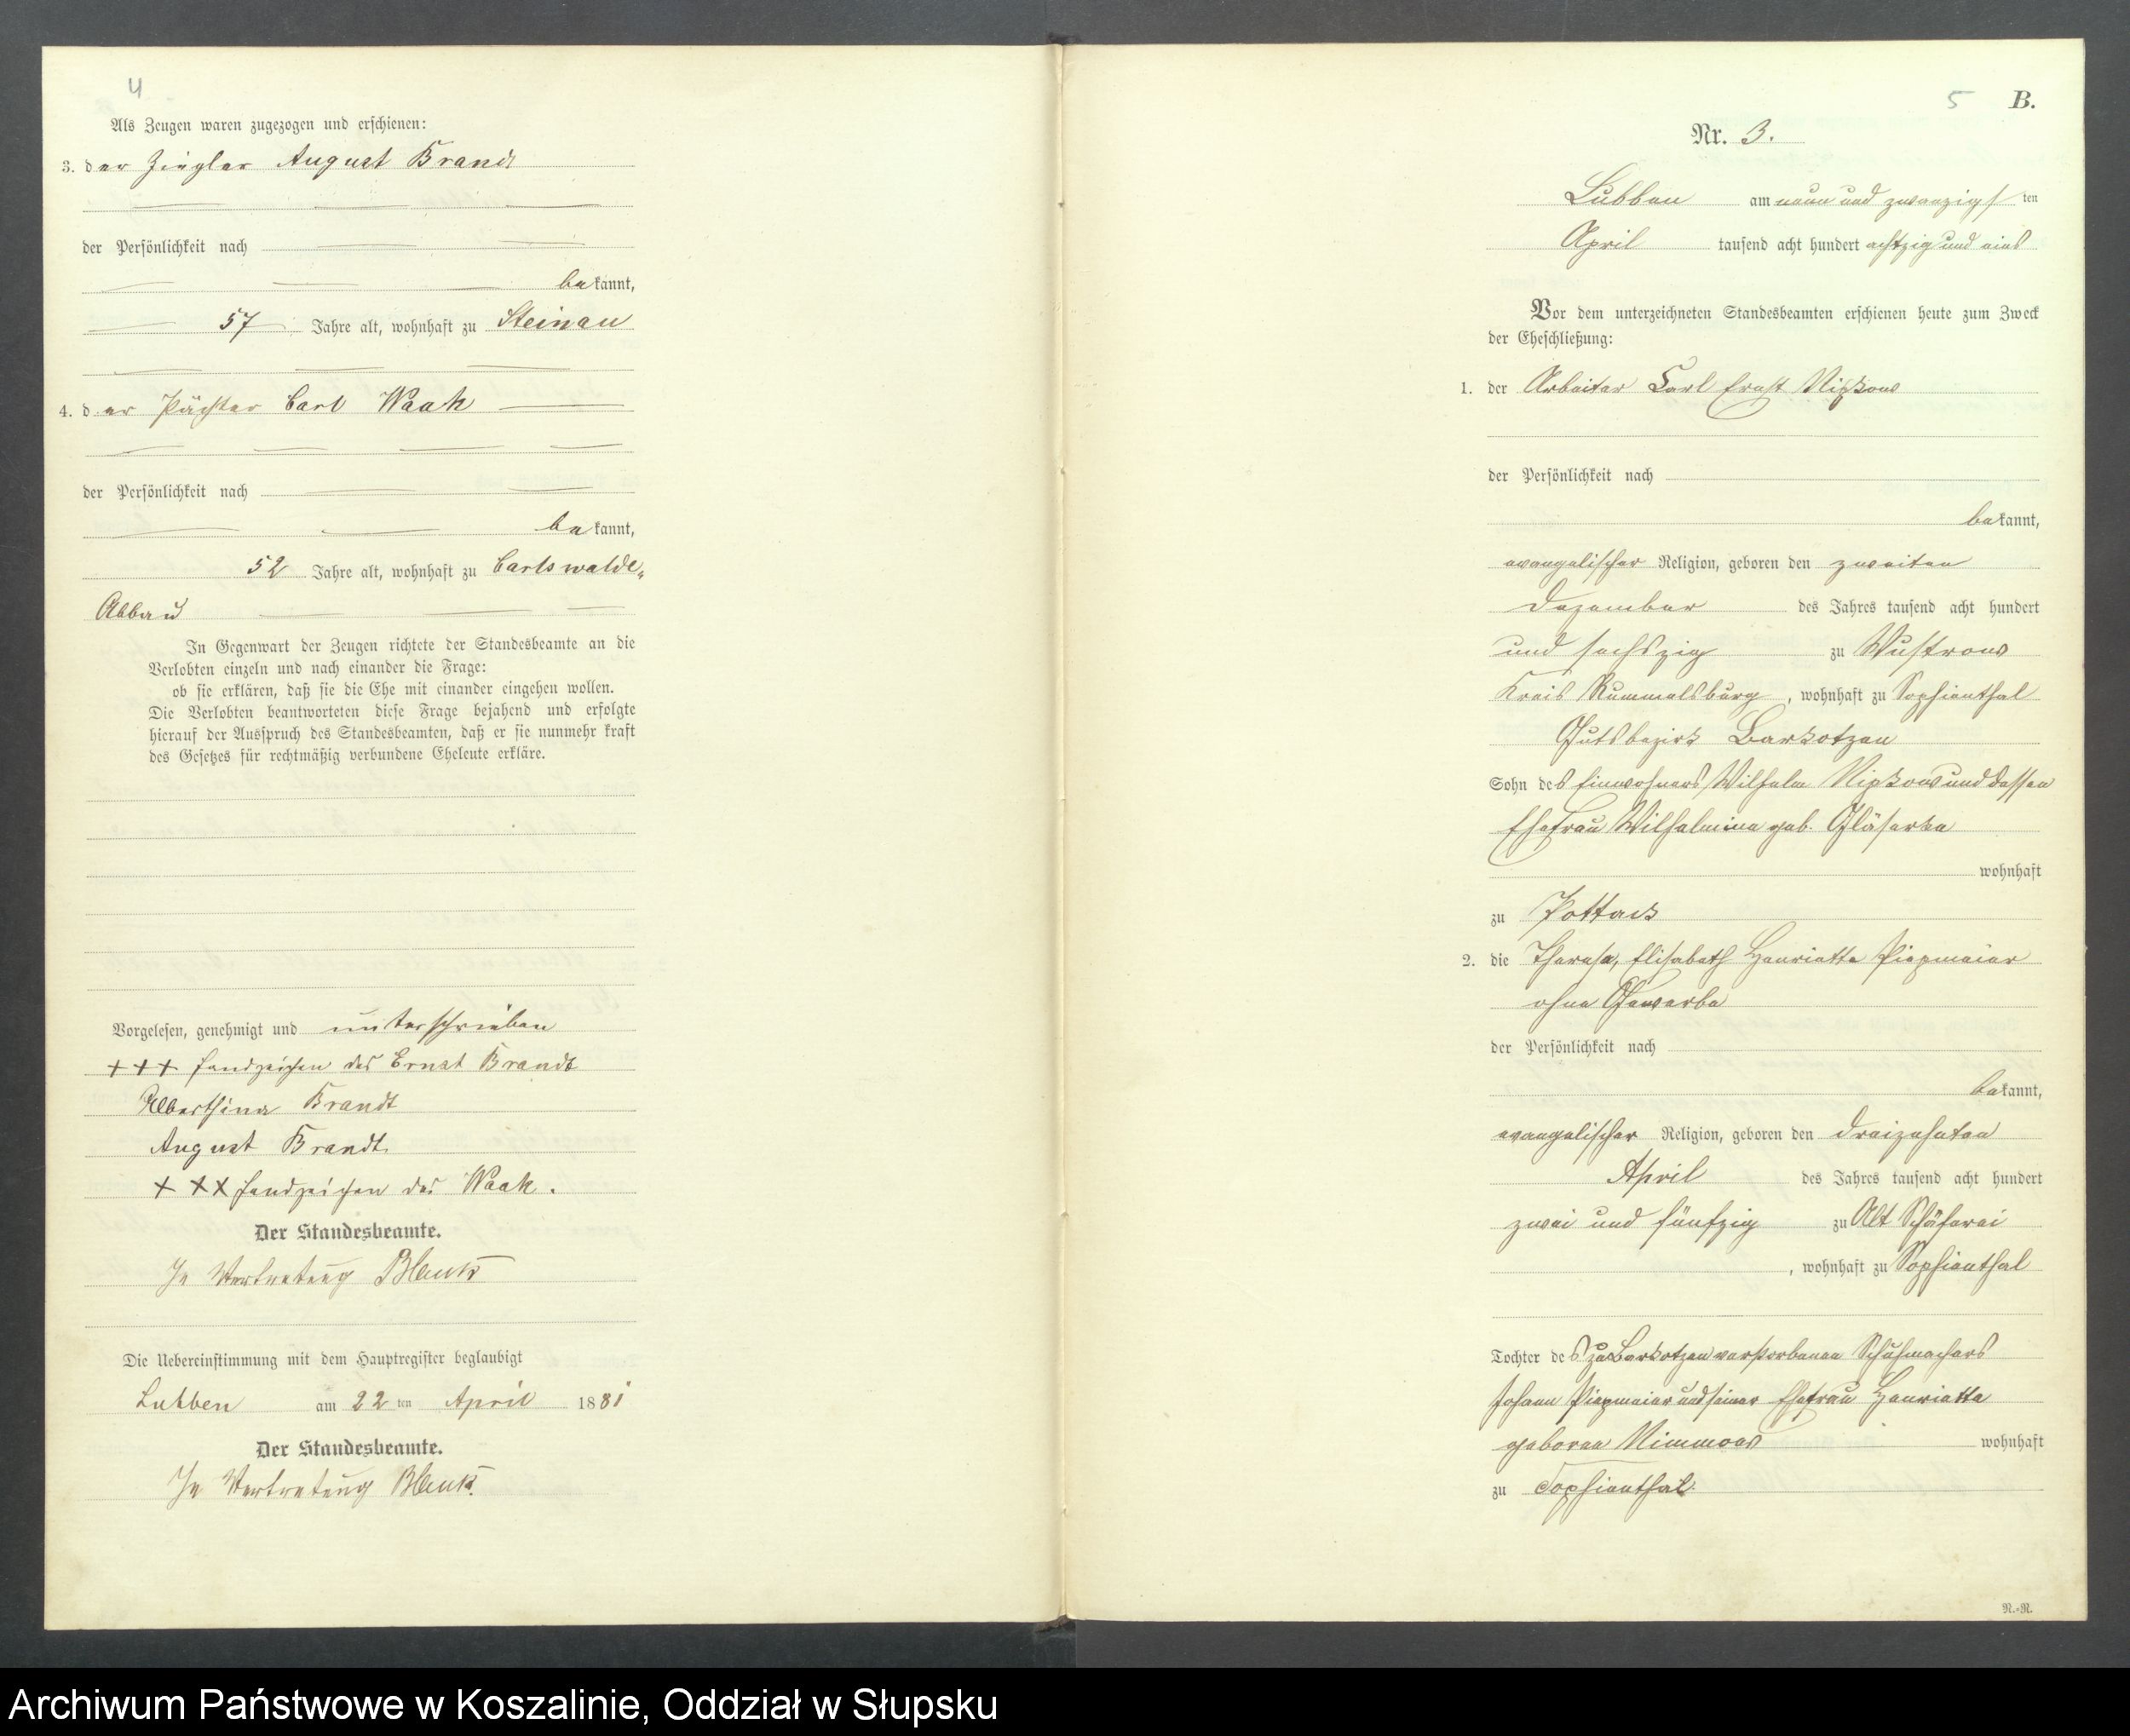 4
Als Zeugen waren zugezogen und erschienen:
3. der Ziegler August Brandt
der Persönlichkeit nach
bekannt,
57 Jahre alt, wohnhaft zu Steinau
4. der Pächter Carl Waak
der Persönlichkeit nach
bekannt,
52 Jahre alt, wohnhaft zu Carlswalde,
Abbau
In Gegenwart der Zeugen richtete der Standesbeamte an die
Verlobten einzeln und nach einander die Frage:
ob sie erklären, daß sie die Ehe mit einander eingehen wollen.
Die Verlobten beantworteten diese Frage bejahend und erfolgte
hierauf der Ausspruch des Standesbeamten, daß er sie nunmehr kraft
des Gesetzes für rechtmäßig verbundene Eheleute erkläre.
Vorgelesen, genehmigt und unterschrieben
+++ Handzeichen des Ernst Brandt
Alberthine Brandt
August Brandt
+++ Handzeichen des Waak.
Der Standesbeamte.
In Vertretung Blank
Die Uebereinstimmung mit dem Hauptregister beglaubigt
Lubben am 22 ten April 1881
Der Standesbeamte.
In Vertretung Blank.
5 B.
Nr. 3.
Lubben am neun und zwanzigsten
April tausend acht hundert achtzig und eins
Vor dem unterzeichneten Standesbeamten erschienen heute zum Zweck
der Eheschließung:
1. der Arbeiter Carl Ernst Nipkow
der Persönlichkeit nach
bekannt,
evangelischer Religion, geboren den zweiten
Dezember des Jahres tausend acht hundert
und sechszig zu Wustrow
Kreis Rummelsburg, wohnhaft zu Sophienthal
Gutsbezirk Barkotzen
Sohn des Einwohners Wilhelm Nipkow und dessen
Ehefrau Wilhelmine geb. Gläserke
wohnhaft
zu Pottack
2. die Therese, Elisabeth Henriette Piepmeier
ohne Gewerbe
der Persönlichkeit nach
bekannt,
evangelischer Religion, geboren den dreizehnten
April des Jahres tausend acht hundert
zwei und fünfzig zu Alt Schäferei
, wohnhaft zu Sophienthal
Tochter des zu Barkotzen verstorbenen Schuhmachers
Johann Piepmeier und seiner Ehefrau Henriette
geboren Nimmow wohnhaft
zu Sophienthal.
N.=N.
Archiwum Państwowe w Koszalinie, Oddział w Słupsku